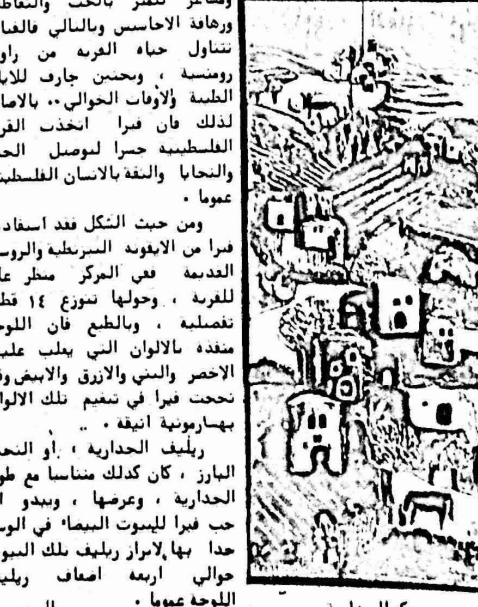 ومشاعر تتميز بالحب والتعاطف
ورهافة الاحاسيس وبالتالي
تتناول حياة القرية من
رومنسية ، وبحنين جارف
الطيبة ولاوقات الخوالي ..
لذلك فان فيرا اتخذت
الفلسطينية جسرا لتوصيل
والتحايا والثقة بالانسان
عموما .
ومن حيث الشكل فقد
فيرا من الايقونة البيزنطية
القديمة ففي المركز منظر
للقرية ، وحولها تتوزع ١٤
تفصيلية ، وبالطبع فان
منفذة بالالوان التي يغلب
الاخضر والبني والازرق والابيض
نجحت فيرا في تنغيم تلك
بهارمونية انيقة .
ريليف الجدارية ، او
البارز ، كان كذلك متناسبا مع
الجدارية ، وعرضها ، ويبدو
حب فيرا للبيوت البيضاء في
حدا بها لابراز ريليف تلك
حوالي اربعة اضعاف
اللوحة عموما .